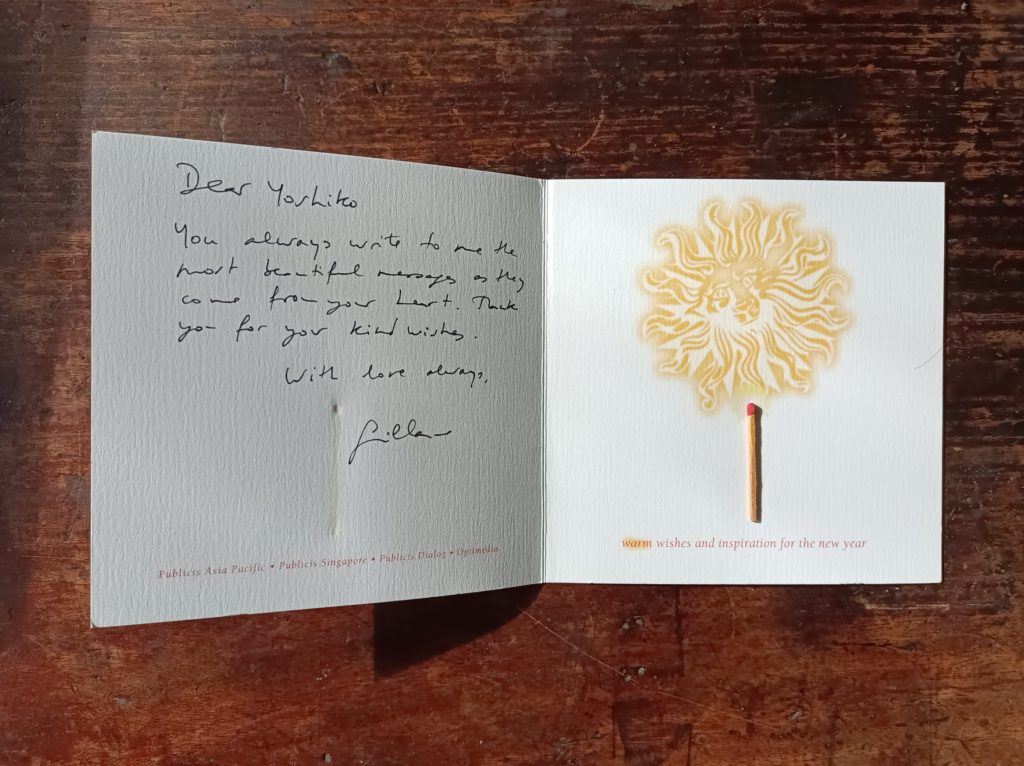 Dear Yoshiko
You always write to me the
most beautiful messages as they
come from your heart. Thank
you for your kind wishes.
With love always,
Publicis Asia Pacific • Publicis Singapore • Publicis Dialog • Optimedia
warm wishes and inspiration for the new year